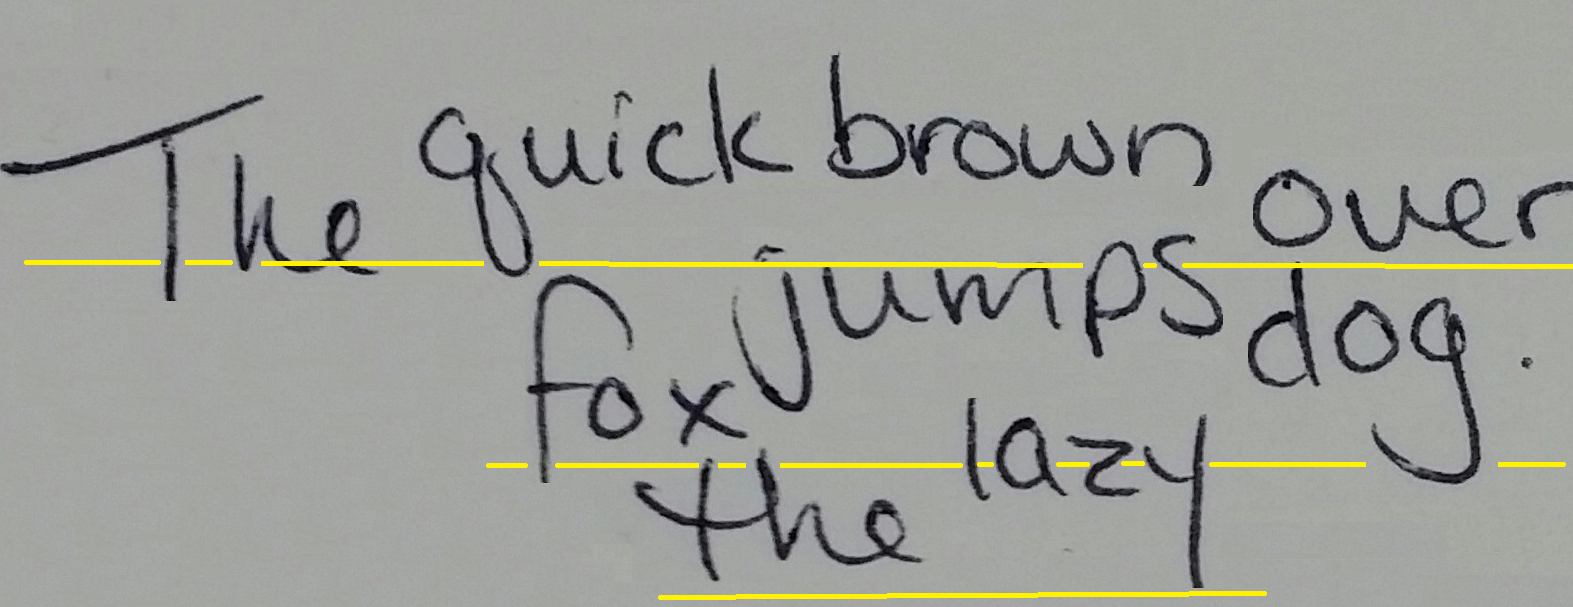 The quick brown over
fox jumps dog.
the lazy